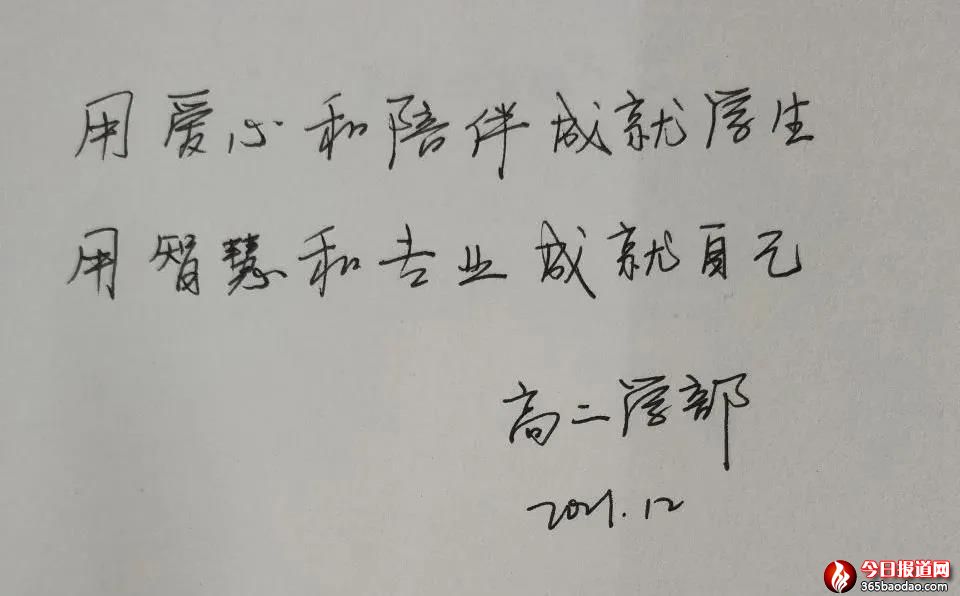 用爱心和陪伴成就学生
用智慧和专业成就自己
高二学部
2021.12
今日报道网
365baodao.com